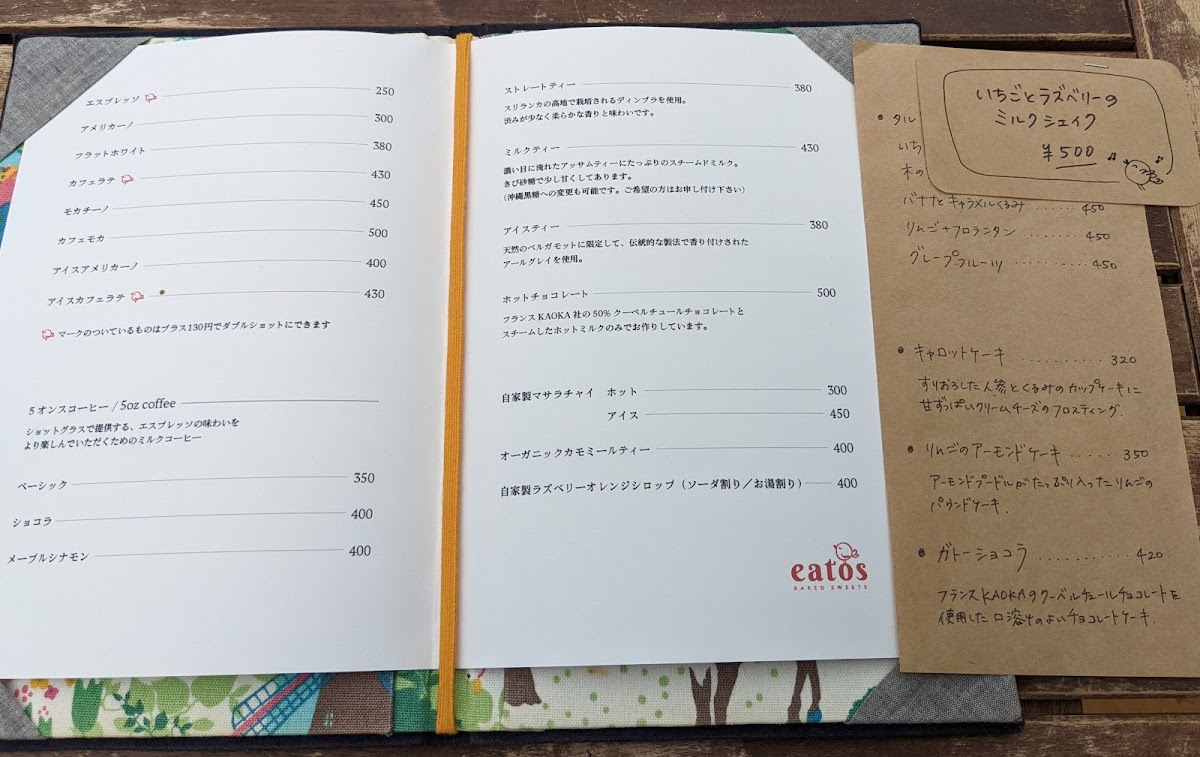 エスプレッソ 250
アメリカーノ 300
フラットホワイト 380
カフェラテ 430
モカチーノ 450
カフェモカ 500
アイスアメリカーノ 400
アイスカフェラテ 430
マークのついているものはプラス130円でダブルショットにできます
5オンスコーヒー / 5oz coffee
ショットグラスで提供する、エスプレッソの味わいを
より楽しんでいただくためのミルクコーヒー
ベーシック 350
ショコラ 400
メープルシナモン 400
ストレートティー 380
スリランカの高地で栽培されるディンブラを使用。
渋みが少なく柔らかな香りと味わいです。
ミルクティー 430
濃い目に淹れたアッサムティーにたっぷりのスチームドミルク。
きび砂糖で少し甘くしてあります。
(沖縄黒糖への変更も可能です。ご希望の方はお申し付け下さい)
アイスティー 380
天然のベルガモットに限定して、伝統的な製法で香り付けされた
アールグレイを使用。
ホットチョコレート 500
フランスKAOKA社の50%クーベルチュールチョコレートと
スチームしたホットミルクのみでお作りしています。
自家製マサラチャイ ホット 300
アイス 450
オーガニックカモミールティー 400
自家製ラズベリーオレンジシロップ(ソーダ割り/お湯割り) 400
eatos
BAKED SWEETS
いちごとラズベリーの
ミルクシェイク
¥500
タル
いち
木の
バナナとキャラメルくるみ ........ 450
りんご+フロランタン ........ 450
グレープフルーツ ............ 450
キャロットケーキ .......... 320
すりおろした人参とくるみのカップケーキに
甘ずっぱいクリームチーズのフロスティング.
りんごのアーモンドケーキ ..... 350
アーモンドプードルがたっぷり入ったりんごの
パウンドケーキ.
ガトーショコラ ........... 420
フランスKAOKAのクーベルチュールチョコレートを
使用した口溶けのよいチョコレートケーキ.